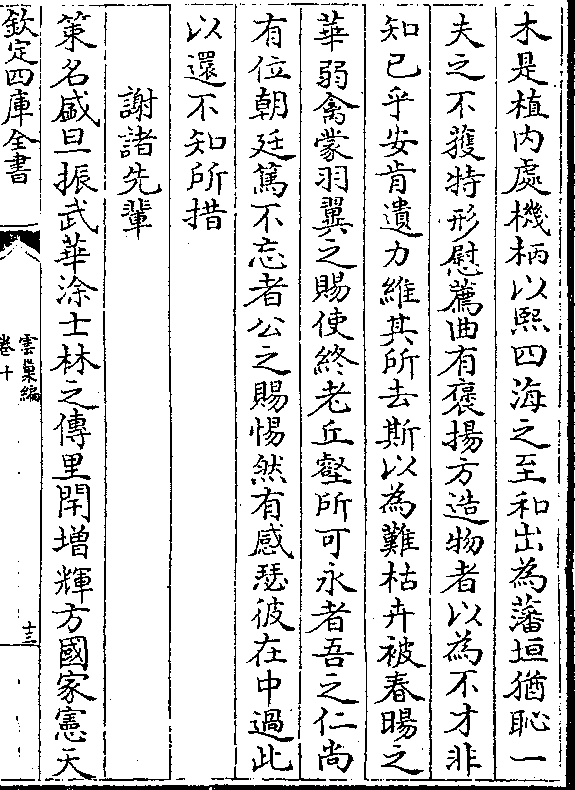 木是植内處機柄以熙四海之至和出為藩垣猶恥一
夫之不獲特形慰薦曲有褒揚方造物者以為不才非
知已乎安肯遺力維其所去斯以為難枯卉被春暘之
華弱禽蒙羽翼之賜使終老丘壑所可永者吾之仁尚
有位朝廷篤不忘者公之賜惕然有感瑟彼在中過此
以還不知所措
謝諸先輩
策名盛旦振武華涂士林之傳里閈增輝方國家憲天
欽定四庫全書
雲巢編
卷十
十三